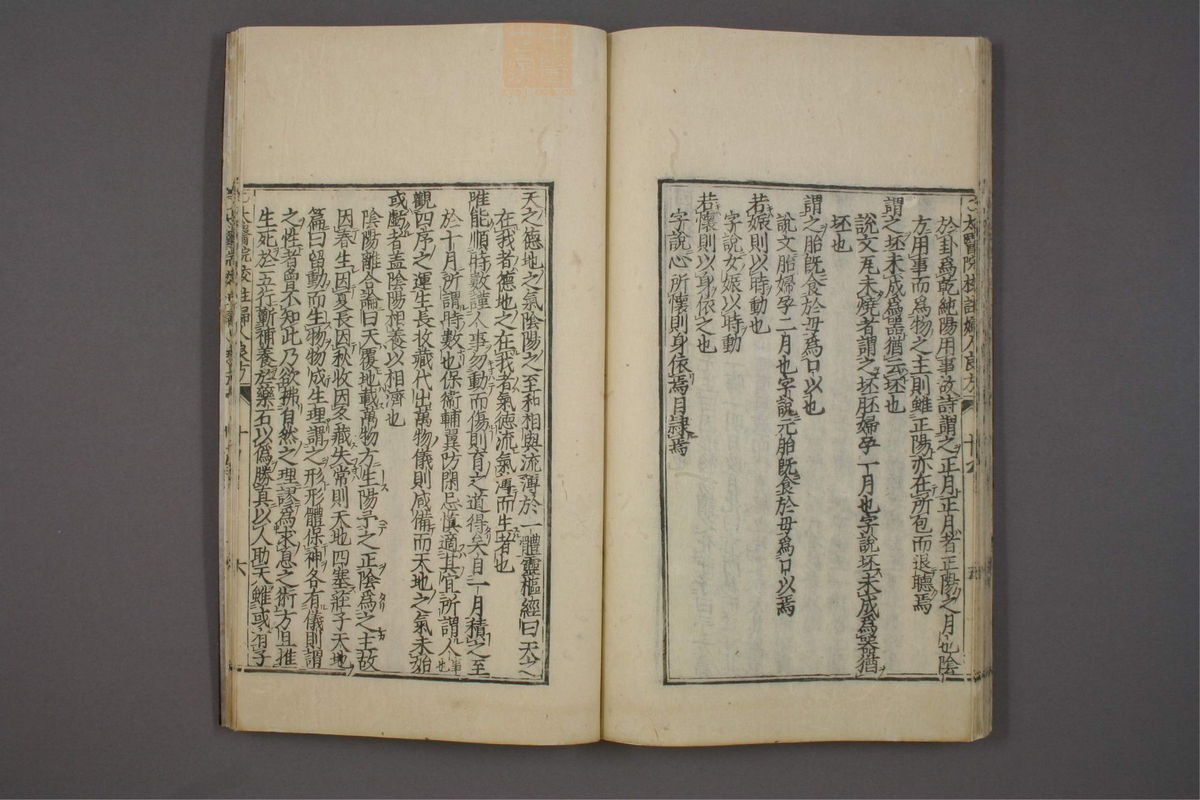 太醫院校註婦人良方
於卦爲乾純陽用事故詩謂之正月正月者正陽之月也陰
方用事而爲物之主則雖正陽亦在所包而退聽焉
謂之坯未成爲器猶云坯也
說文瓦未燒者謂之坯胚婦孕一月也字說坯未成爲器猶
坯也
謂之胎既食於母爲口以也
說文胎婦孕二月也字說元胎既食於母爲口以焉
若娠則以時動也
字說女娠以時動
若懷則以身依之也
字說心所懷則身依焉月隷焉
天之德地之氣陰陽之至和相與流薄於一體靈樞經曰天之
在我者德地之在我者氣德流氣薄而生者也
唯能順時數謹人事勿動而傷則育之道得矣自一月積之至
於十月所謂時數也保衞輔翼防閑忌愼適其宜所謂人事也
觀四序之運生長收藏代出萬物儀則咸備而天地之氣未始
或虧者盖陰陽相養以相濟也
陰陽離合論曰天覆地載萬物方生陽予之正陰爲之主故
因春生因夏長因秋收因冬藏失常則天地四塞莊子天地
篇曰留動而生物物成生理謂之形形體保神各有儀則謂
之性者曾不知此乃欲拂自然之理謬爲求息之術方且推
生死於五行蘄補養於藥石以偽勝真以人助天雖或有子
太醫院校註婦人良方